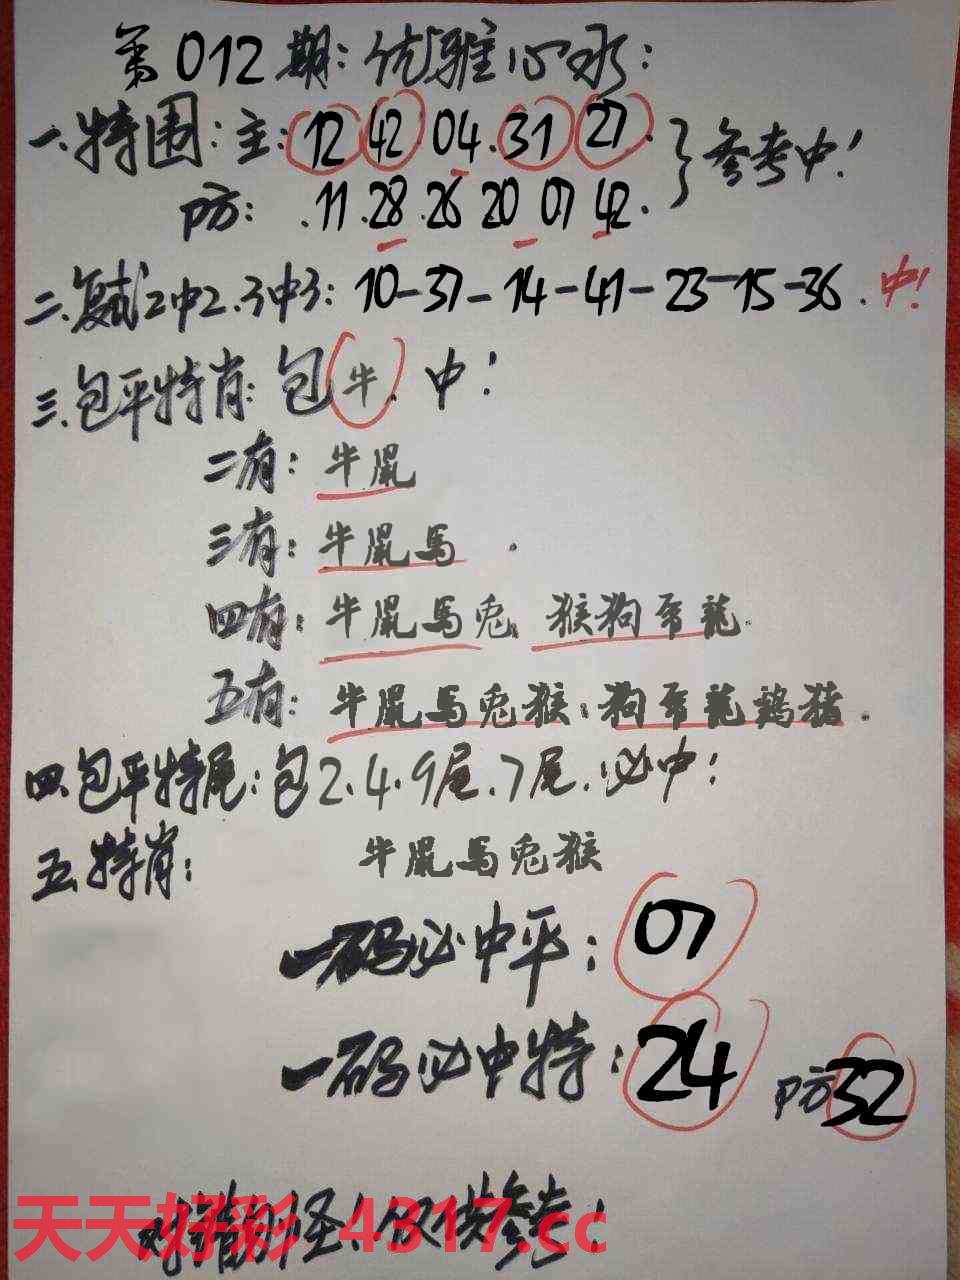 第012期:优雅心水:
一.特围:主:12 42.04.31 27.}参考中!
防:.11.28.26 20 07 42.
二.复试2中2.3中3:10-37-14-41-23-15-36.中!
三.包平特肖:包牛.中!
二有:牛鼠
三有:牛鼠馬.
四有:牛鼠馬兎 猴狗 龍.
五有:牛鼠馬兎猴.狗 龍鷄猪.
四.包平特尾:包2.4.9尾.7尾.必中!
五.特肖:牛鼠馬兎猴
一码必中平:07
一码必中特:24 防32
对错勿怪!仅供参考!
天天好彩 4317.cc